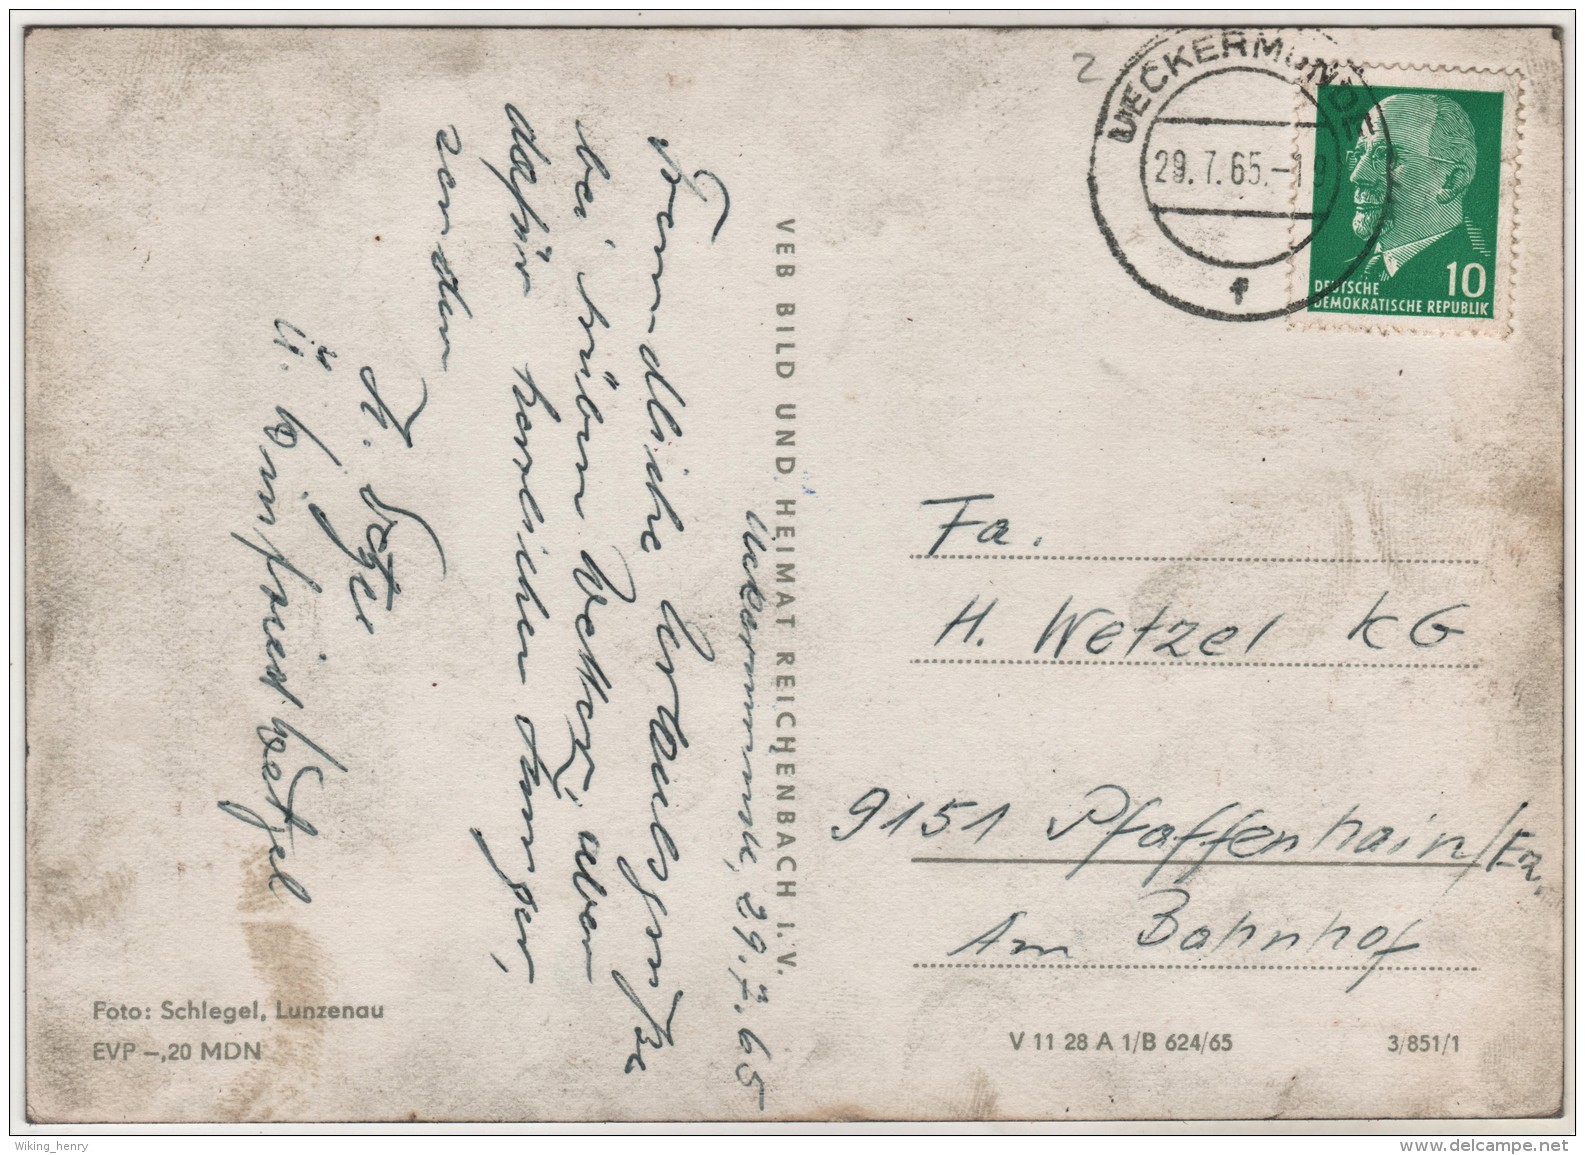 Ückermünde, 29.7.65
Freundliche Urlaubsgrüße
bei trübem Wetter, aber
dafür herrlichem Hunger,
senden
H. Wetzel
u. Winfried Wetzel
VEB BILD UND HEIMAT REICHENBACH I. V.
Foto: Schlegel, Lunzenau
EVP –,20 MDN
2
UECKERMÜNDE
29.7.65.-19
f
10
DEUTSCHE
DEMOKRATISCHE REPUBLIK
Fa.
H. Wetzel KG
9151 Pfaffenhain/Erz.
Am Bahnhof
V 11 28 A 1/B 624/65
3/851/1
Wiking_henry
www.delcampe.net